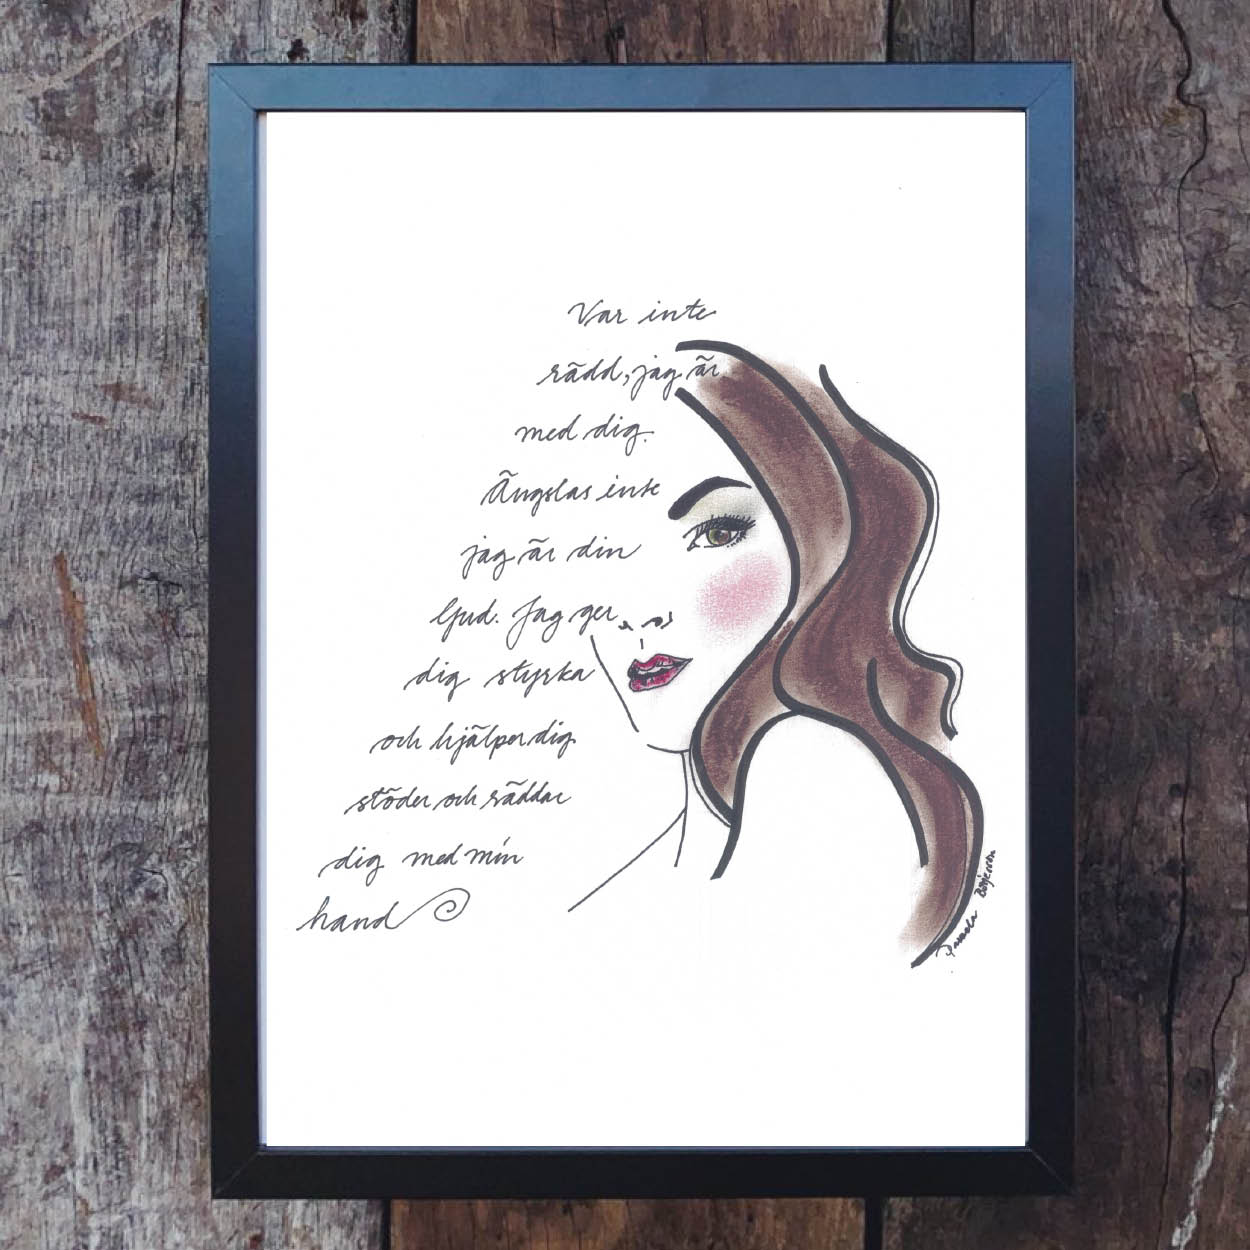 Var inte
rädd, jag är
med dig.
Ängslas inte
jag är din
ljud. Jag ger
dig styrka
och hjälper dig
stöder och räddar
dig med min
hand
Pamela